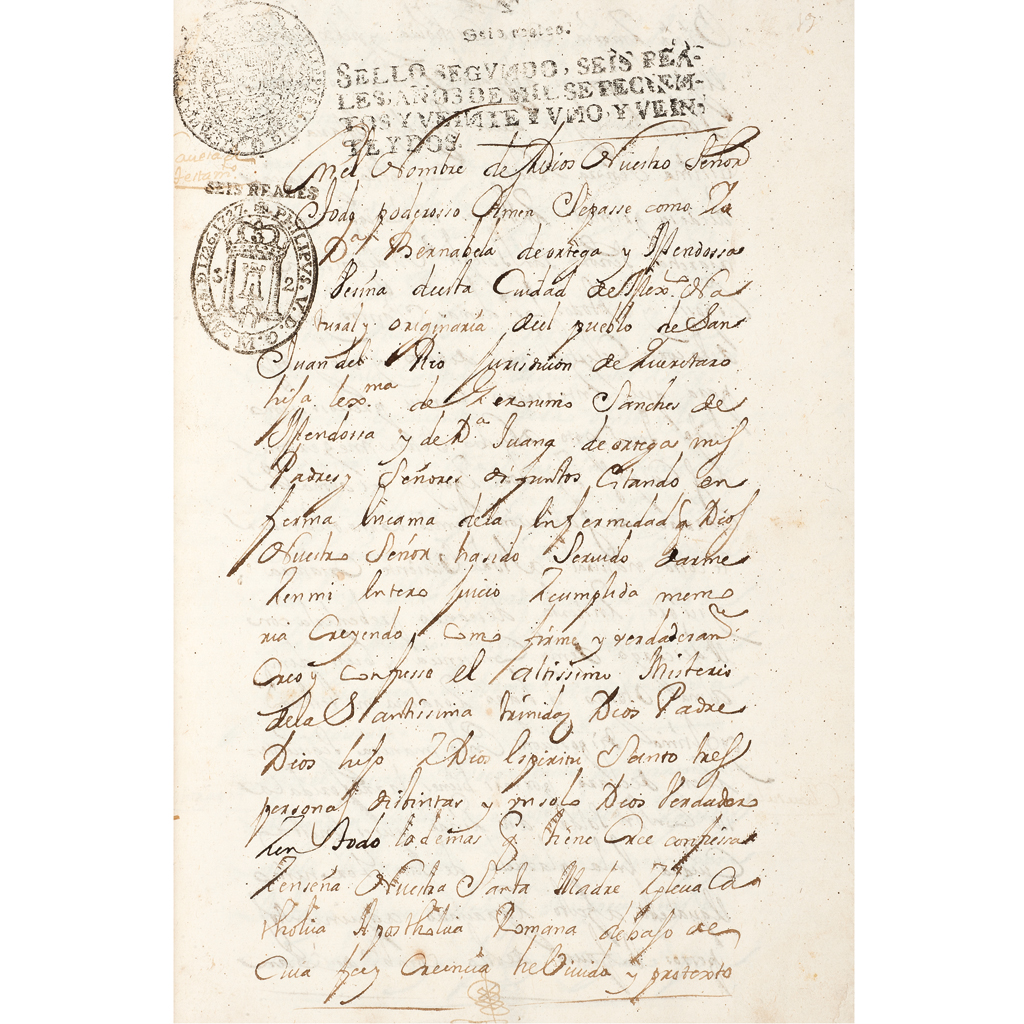 Seis reales.
SELLO SEGVNDO, SEIS REA-
LES, AÑOS DE MIL SETECIEN-
TOS Y VEINTE Y VNO, Y VEIN-
TE Y DOS.
SEIS REALES
PHILIPVS. V. D. G.
Enel Nombre de Dios Nuestro Señor
Todo poderosso Amen Sepasse como Yo
Dª Bernabela de ortega y Mendossa
Vesina desta Ciudad de Mexco Na
tural y originaria del pueblo de San
Juan del Rio Jurisdicion de queretaro
hija lexma de Geronimo Sanches de
Mendossa y de Dª Juana de ortega mis
Padres y Señores difuntos Estando en
ferma Encama dela Enfermedad q Dios
Nuestro Señor hasido Servido darme
Yenmi Entero Juicio Y cumplida memo
ria Creyendo, como firme y verdaderamte
Creo y confiesso el altissimo Misterio
dela Santissima trinidad Dios Padre
Dios hijo Y Dios Espiritu Santo tres
personas distintas y unsolo Dios Verdadero
Yen todo lodemas q tiene Cree confiessa
Yenseña Nuestra Santa Madre Yglecia Ca
tholica Apostholica Romana debajo de
Cuia fee y Creencia he Vivido y protexto